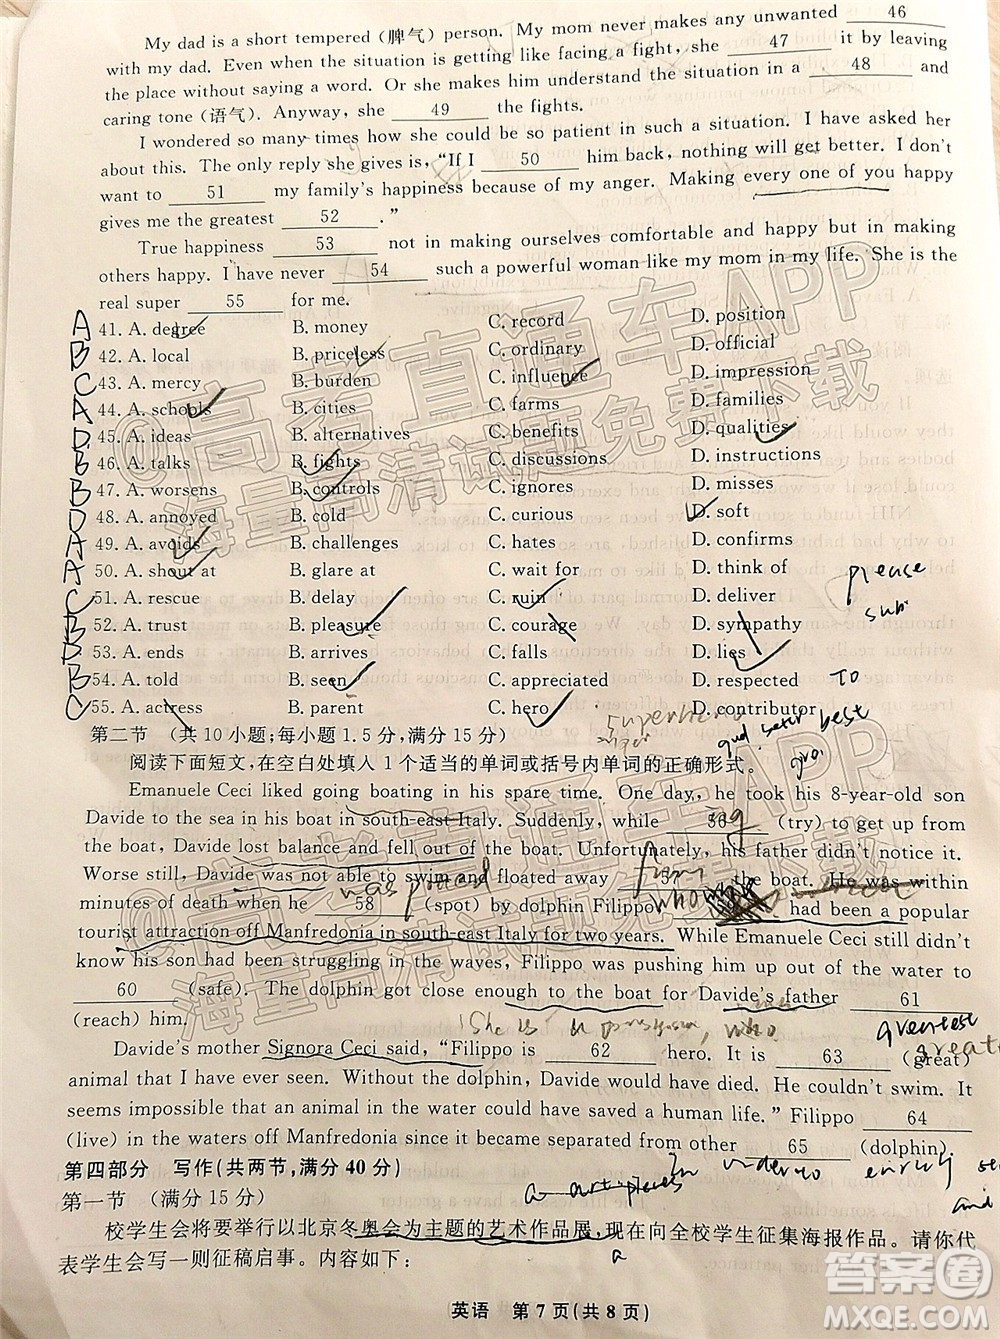 My dad is a short tempered (脾气) person. My mom never makes any unwanted 46
with my dad. Even when the situation is getting like facing a fight, she 47 it by leaving
the place without saying a word. Or she makes him understand the situation in a 48 and
caring tone (语气). Anyway, she 49 the fights.
I wondered so many times how she could be so patient in such a situation. I have asked her
about this. The only reply she gives is, "If I 50 him back, nothing will get better. I don't
want to 51 my family's happiness because of my anger. Making every one of you happy
gives me the greatest 52 ."
True happiness 53 not in making ourselves comfortable and happy but in making
others happy. I have never 54 such a powerful woman like my mom in my life. She is the
real super 55 for me.
A 41. A. degree B. money C. record D. position
B 42. A. local B. priceless C. ordinary D. official
C 43. A. mercy B. burden C. influence D. impression
A 44. A. schools B. cities C. farms D. families
D 45. A. ideas B. alternatives C. benefits D. qualities
B 46. A. talks B. fights C. discussions D. instructions
B 47. A. worsens B. controls C. ignores D. misses
D 48. A. annoyed B. cold C. curious D. soft
A 49. A. avoids B. challenges C. hates D. confirms
A 50. A. shout at B. glare at C. wait for D. think of please
C 51. A. rescue B. delay C. ruin D. deliver
B 52. A. trust B. pleasure C. courage D. sympathy
53. A. ends B. arrives C. falls D. lies
B 54. A. told B. seen C. appreciated D. respected To
C 55. A. actress B. parent C. hero D. contributor best
第二节 (共10小题;每小题1.5分,满分15分)
阅读下面短文,在空白处填入1个适当的单词或括号内单词的正确形式。
Emanuele Ceci liked going boating in his spare time. One day, he took his 8-year-old son
Davide to the sea in his boat in south-east Italy. Suddenly, while 56 (try) to get up from
the boat, Davide lost balance and fell out of the boat. Unfortunately, his father didn't notice it.
Worse still, Davide was not able to swim and floated away from the boat. He was within
minutes of death when he 58 (spot) by dolphin Filippo who had been a popular
tourist attraction off Manfredonia in south-east Italy for two years. While Emanuele Ceci still didn't
know his son had been struggling in the waves, Filippo was pushing him up out of the water to
60 (safe). The dolphin got close enough to the boat for Davide's father 61
(reach) him.
greatest
Davide's mother Signora Ceci said, "Filippo is 62 hero. It is 63 (great)
animal that I have ever seen. Without the dolphin, Davide would have died. He couldn't swim. It
seems impossible that an animal in the water could have saved a human life." Filippo 64
(live) in the waters off Manfredonia since it became separated from other 65 (dolphin).
第四部分 写作(共两节,满分40分)
第一节 (满分15分)
校学生会将要举行以北京冬奥会为主题的艺术作品展,现在向全校学生征集海报作品。请你代
表学生会写一则征稿启事。内容如下:
a
英语 第7页(共8页)
@高考直通车APP
海量高清试题免费下载
@高考直通车APP
海量高清试题免费下载
答案圈
MXQE.COM